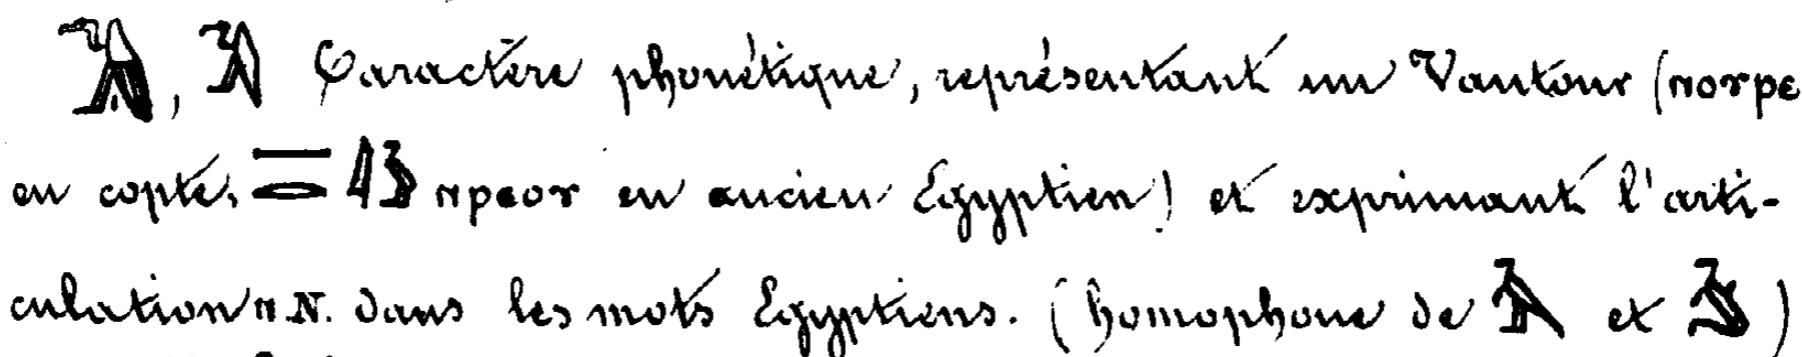 , Caractère phonétique, représentant un Vautour (ⲛⲟⲩⲣⲉ
en copte, ⲛⲣⲉⲟⲩ en ancien Egyptien) et exprimant l'arti-
culation ⲛ. N. dans les mots Egyptiens. (homophone de et )